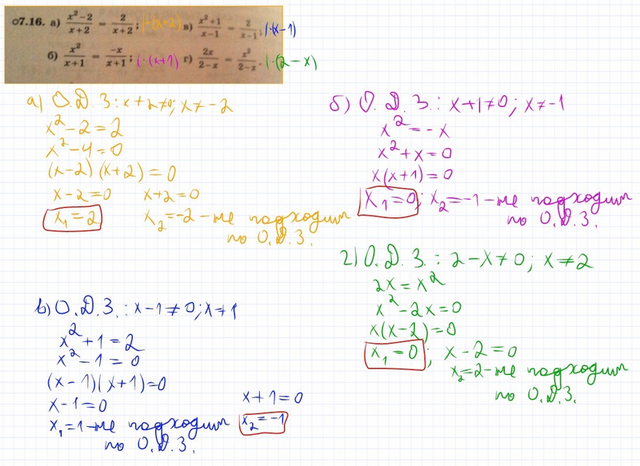 07.16. а) x²-2/x+2 = 2/x+2; |·(x+2) в) x²+1/x-1 = 2/x-1; |·(x-1)
б) x²/x+1 = -x/x+1; |·(x+1) г) 2x/2-x = x²/2-x. |·(2-x)
а) О.Д.З.: x+2≠0; x≠-2
x²-2=2
x²-4=0
(x-2)(x+2)=0
x-2=0 x+2=0
x₁=2 x₂=-2 - не подходит
по О.Д.З.
б) О.Д.З.: x+1≠0; x≠-1
x²=-x
x²+x=0
x(x+1)=0
x₁=0; x₂=-1 - не подходит
по О.Д.З.
в) О.Д.З.: x-1≠0; x≠1
x²+1=2
x²-1=0
(x-1)(x+1)=0
x-1=0 x+1=0
x₁=1 - не подходит x₂=-1
по О.Д.З.
г) О.Д.З.: 2-x≠0; x≠2
2x=x²
x²-2x=0
x(x-2)=0
x₁=0; x-2=0
x₂=2 - не подходит
по О.Д.З.